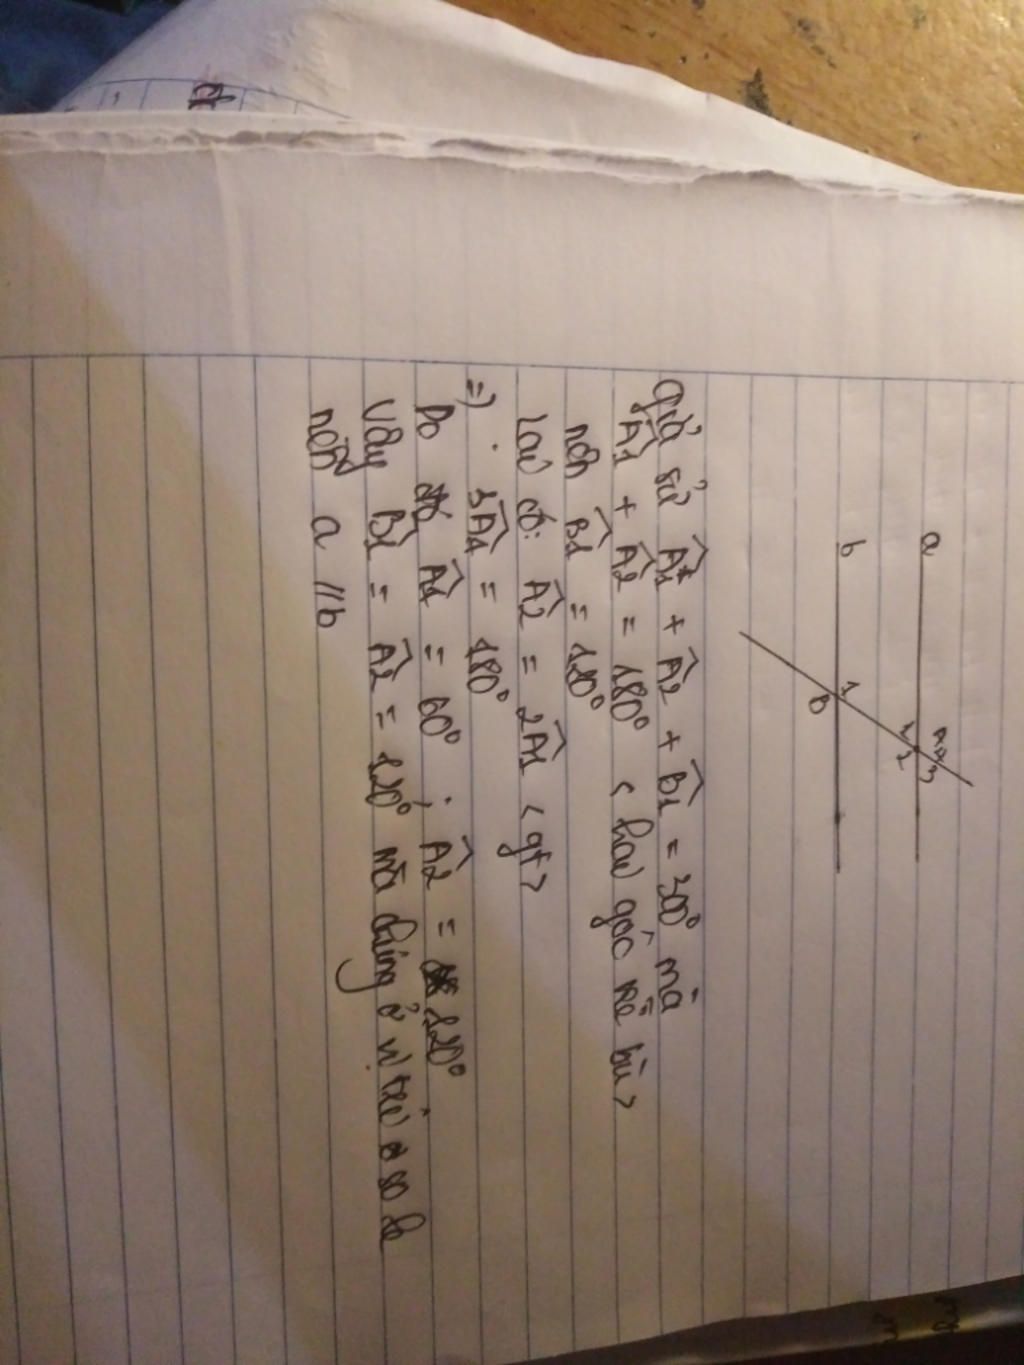 a
b
1
B
3
2
giả sử Â1 + Â2 + B̂1 = 300° mà
Â1 + Â2 = 180° < hai góc kề bù >
nên B̂1 = 120°
Lại có: Â2 = 2Â1 < gt >
=> 3Â1 = 180°
Do đó Â1 = 60° ; Â2 = 120°
Vậy B̂1 = Â2 = 120° mà chúng ở vị trí so le
nên a // b